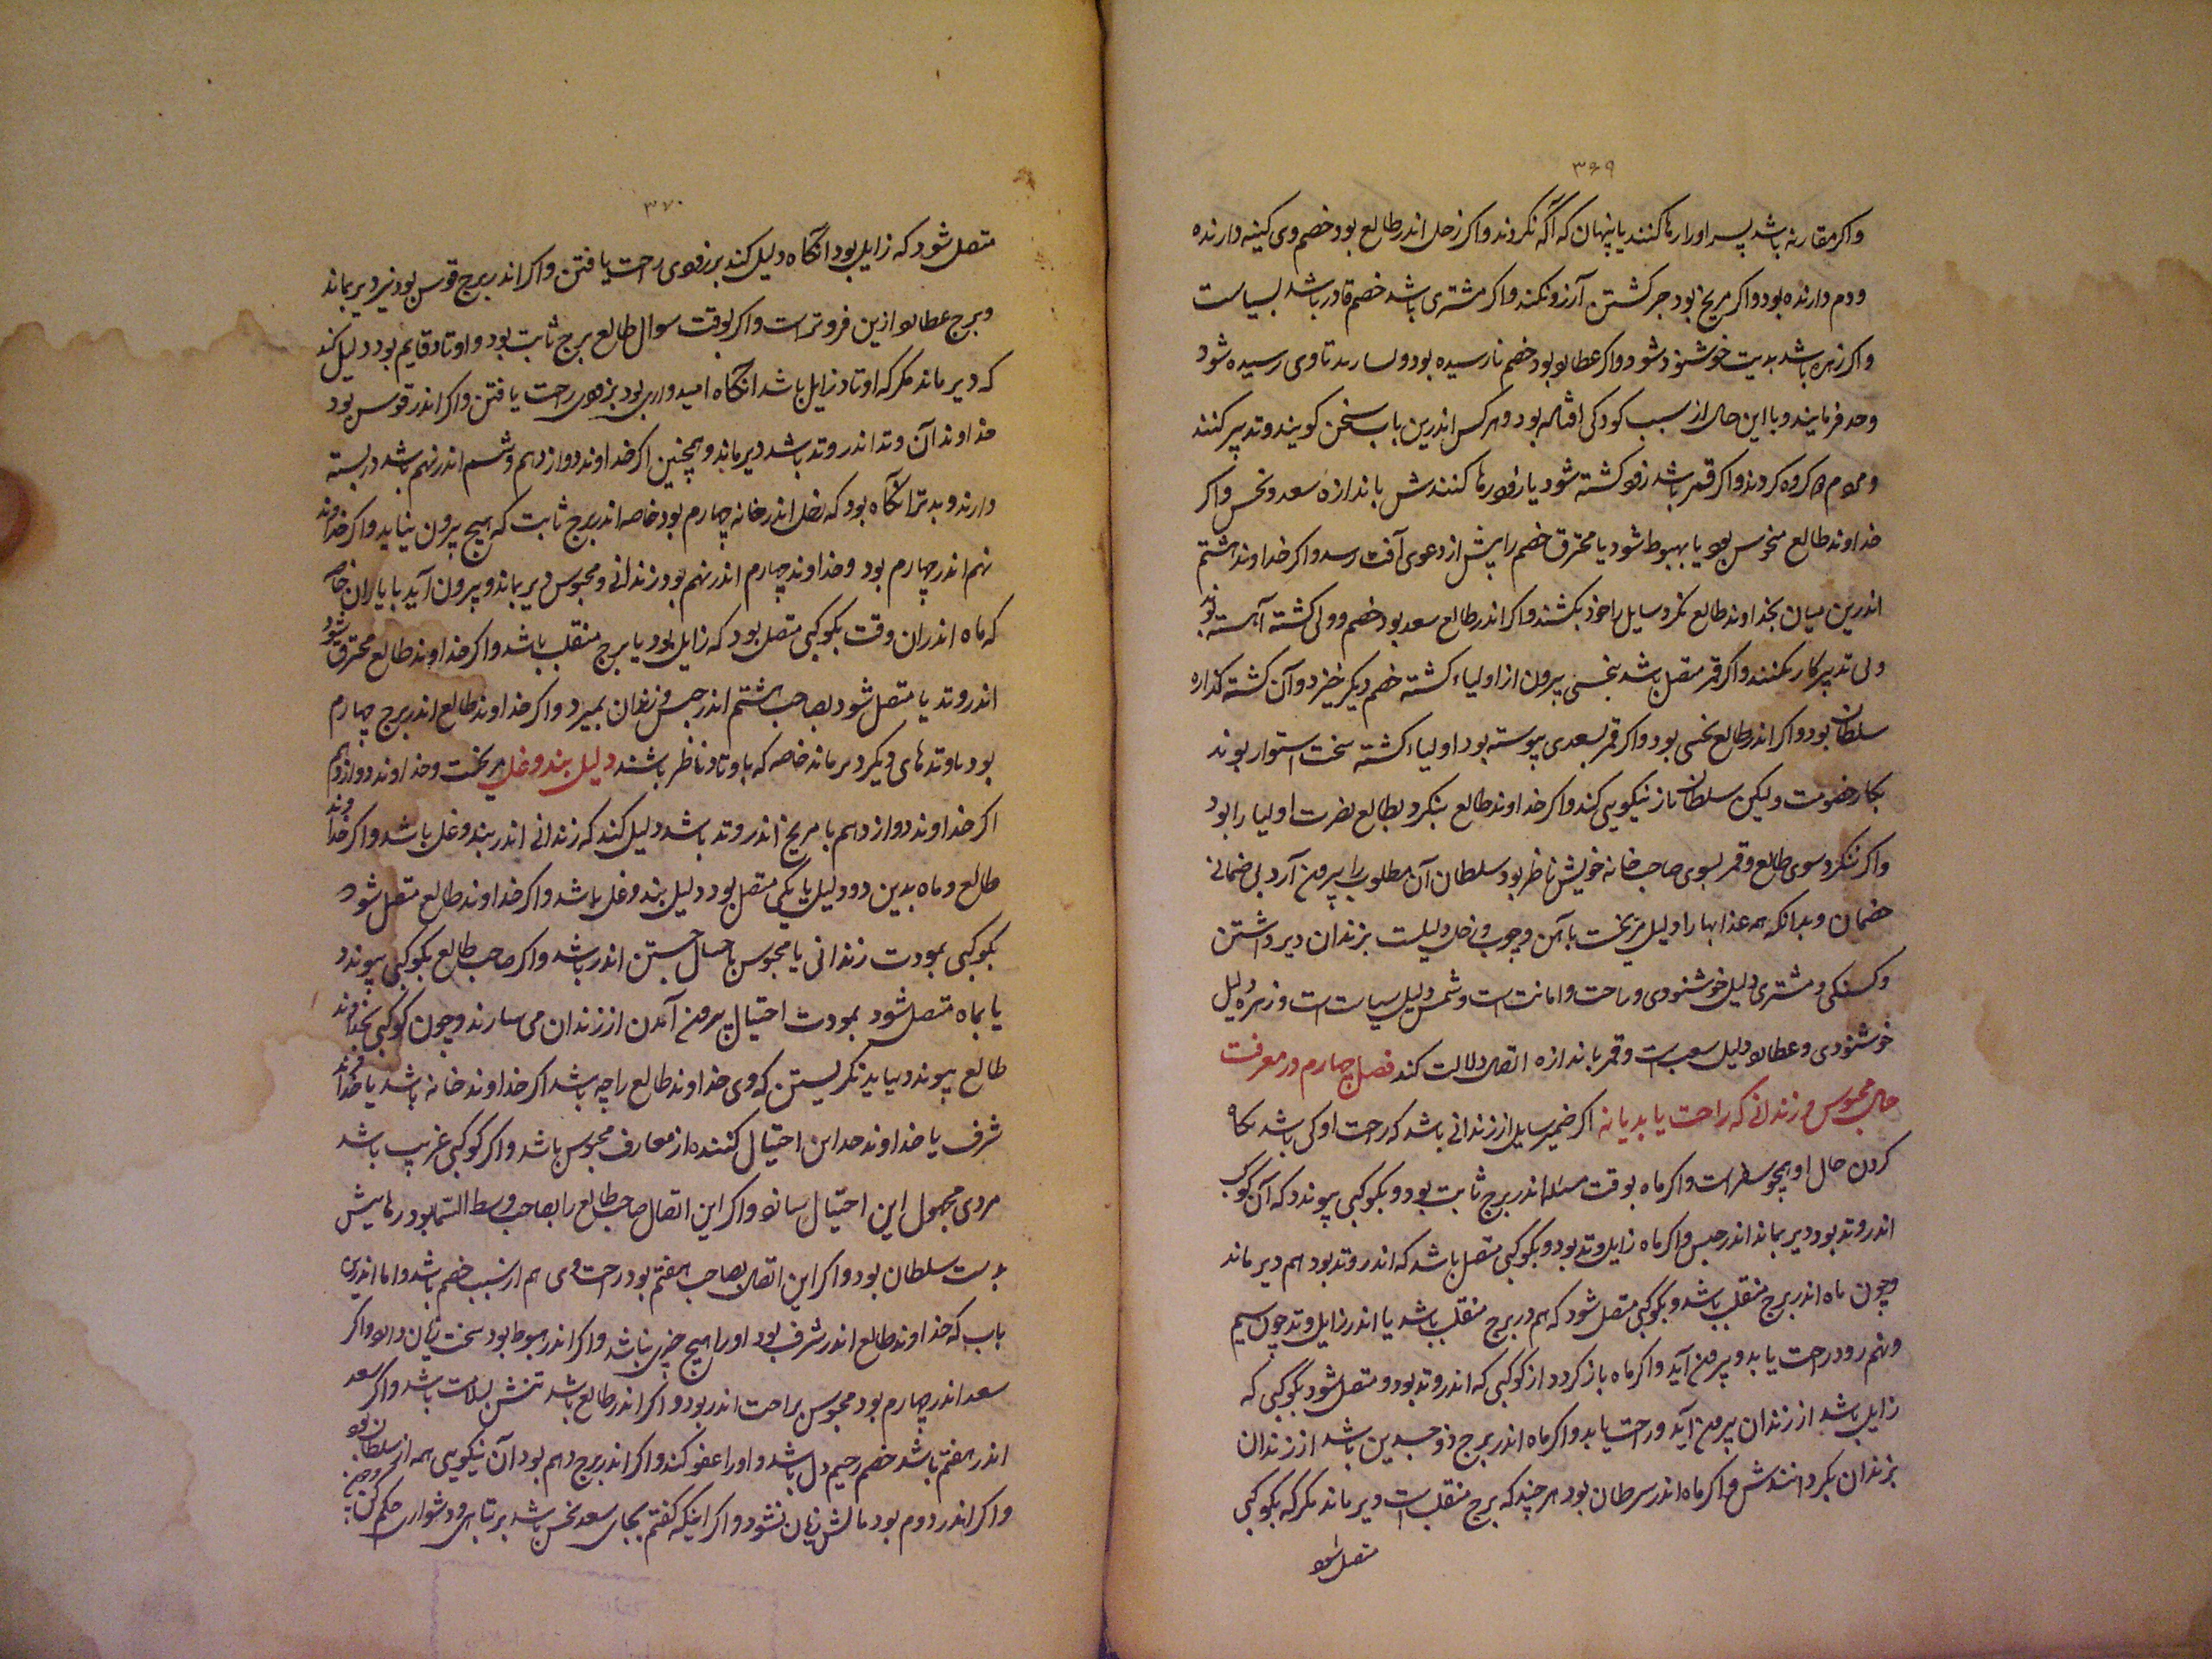 ۳۶۹
واکر مقارنه باشد پس اورا رها کنند یا پنهان که آگه نکردند واکر زحل اندر طالع بود خصم وی کینه دارنده
ودم دارنده بود واکر مریخ بود جز کشتن آرزو نکند واکر مشتری باشد خصم قادر باشد بسیاست
واکر زهره باشد بدیت خوشنود شود واکر عطارد بود خصم نارسیده بود تا وی رسیده شود
وحد فرمایند وبا این حال از سبب کودکی افتاده بود وهر کس اندرین باب سخن کویند وتدبیر کنند
ومردم کروه کردند واکر قمر باشد زود کشته شود یا زود رها کنندش باندازه سعد ونحس واکر
خداوند طالع منحوس بود یا بهبوط شود یا محترق خصم را پیش از دعوی آفت رسد واکر خداوند هشتم
اندرین میان بخداوند طالع نکرد سایل را خود بکشند واکر اندر طالع سعد بود خصم وولی کشته آهسته بوند
ولی تدبیر کار نکنند واکر قمر متصل باشد بنحسی بیرون از اولیاء کشته خصم دیکر خیزد وآن کشته کذاره
سلطان بود واکر اندر طالع نحسی بود واکر قمر بسعدی پیوسته بود اولیاء کشته سخت استوار بوند
بکار خصومت ولیکن سلطان باز نیکویی کند واکر خداوند طالع بنکرد بطالع نصرت اولیا را بود
واکر ننکرد سوی طالع وقمر بسوی صاحب خانه خویش ناظر بود سلطان آن مطلوب را بیرون آرد بی ضمانی
ضمان وبدانکه همه عذابها را دلیل مریخست بآهن وچوب وزحل دلیلست بزندان دیر داشتن
وکسنکی ومشتری دلیل خوشنودی وراحت وامانت است وشمس دلیل سیاست است وزهره دلیل
خوشنودی وعطارد دلیل سبب است وقمر باندازه اتصال دلالت کند فصل چهارم در معرفت
حال محبوس و زندانی که راحت یابد یا نه اکر ضمیر سایل از زندانی باشد که راحت او کی باشد نکاه
کردن حال او همچو سفر است واکر ماه بوقت مسئله اندر برج ثابت بود وبکوکبی پیوندد که آن کوکب
اندر وتد بود دیر بماند اندر حبس واکر ماه زایل وتد بود وبکوکبی متصل باشد که اندر وتد بود هم دیر ماند
وچون ماه اندر برج منقلب باشد وبکوکبی متصل شود که هم در برج منقلب باشد یا اندر زایل وتد چون سیم
ونهم زود راحت یابد وبیرون آید واکر ماه باز کردد از کوکبی که اندر وتد بود ومتصل شود بکوکبی که
زایل باشد از زندان بیرون آید وراحت یابد واکر ماه اندر برج ذوجسدین باشد از زندان
بزندان بکردانندش واکر ماه اندر سرطان بود هرچند که برج منقلب است دیر ماند مکر که بکوکبی
متصل شود
۳۷۰
متصل شود که زایل بود آنکاه دلیل کند بر زودی راحت یافتن واکر اندر برج قوس بود نیز دیر بماند
وبرج عطارد ازین فروتر است واکر بوقت سوال طالع برج ثابت بود واوتاد قایم بود دلیل کند
که دیر ماند مکر که اوتاد زایل باشد آنکاه امیدواری بود بزودی راحت یافتن واکر اندر قوس بود
خداوند آن وتد اندر وتد باشد دیر ماند وهمچنین اکر خداوند دوازدهم وششم اندر نهم باشد در بسته
دارند وبدتر آنکاه بود که زحل اندر خانه چهارم بود خاصه اندر برج ثابت که هیچ بیرون نیاید واکر خداوند
نهم اندر چهارم بود وخداوند چهارم اندر نهم بود زندانی ومحبوس دیر بماند وبیرون آید با یاران خاصه
که ماه اندران وقت بکوکبی متصل بود که زایل بود یا برج منقلب باشد واکر خداوند طالع محترق شود
اندر وتد یا متصل شود بصاحب هشتم اندر حبس وزندان بمیرد واکر خداوند طالع اندر برج چهارم
بود یا وتدهای دیکر دیر ماند خاصه که باوتاد ناظر باشند دلیل بند وغل مریخست وخداوند دوازدهم
اکر خداوند دوازدهم با مریخ اندر وتد باشد دلیل کند که زندانی اندر بند وغل باشد واکر خداوند
طالع وماه بدین دو دلیل یا بیکی متصل بود دلیل بند وغل باشد واکر خداوند طالع متصل شود
بکوکبی بمودت زندانی یا محبوس باحتیال جستن اندر باشد واکر صاحب طالع بکوکبی پیوندد
یا بماه متصل شود بمودت احتیال بیرون آمدن از زندان می سازند وچون کوکبی بخداوند
طالع پیوندد بباید نکریستن که وی خداوند طالع را چه باشد اکر خداوند خانه باشد یا خداوند
شرف یا خداوند حد این احتیال کننده از معارف محبوس باشد واکر کوکبی غریب باشد
مردی مجهول این احتیال سازد واکر این اتصال صاحب طالع را بصاحب وسط السما بود رهایش
بدست سلطان بود واکر این اتصال بصاحب هفتم بود راحت وی هم از سبب خصم باشد واما اندرین
باب که خداوند طالع اندر شرف بود او را هیچ چیزی نباشد واکر اندر هبوط بود سخت زیان دارد واکر
سعد اندر چهارم بود محبوس براحت اندر بود واکر اندر طالع باشد تنش بسلامت باشد واکر سعد
اندر هفتم باشد خصم رحیم دل باشد و او را عفو کند واکر اندر برج دهم بود آن نیکویی همه از سلطان بود
واکر اندر دوم بود مالش زیان نشود واکر اینکه کفتم بجای سعد نحس باشد بر تباهی ودشواری حکم کن